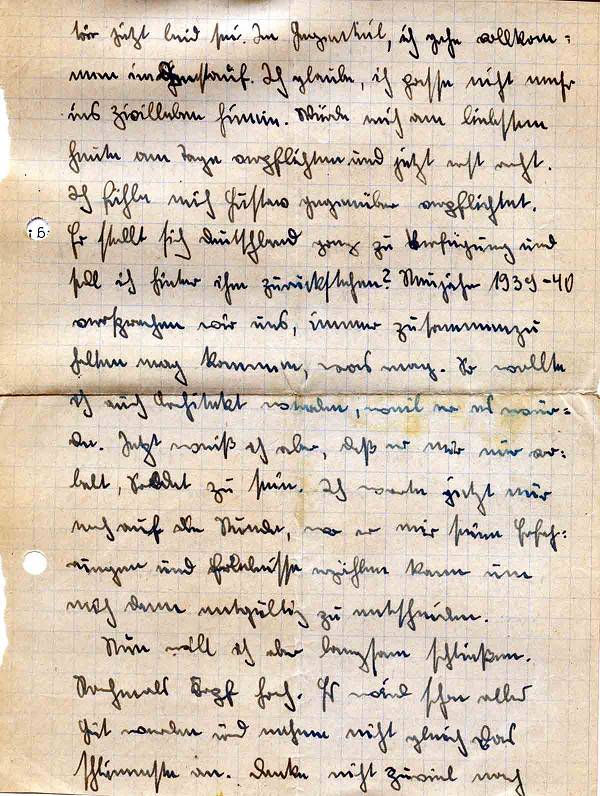 jetzt leid sei. Im Gegenteil, ich gehe vollkom=
men im Dienst auf. Ich glaube, ich passe nicht mehr
ins Zivilleben hinein. Würde mich am liebsten
heute am Tage verpflichten und jetzt erst recht.
Ich fühle mich Gustav gegenüber verpflichtet.
:6.
Er stellt sich Deutschland ganz zu Verfügung und
soll ich hinter ihm zurückstehen? Neujahr 1939-40
versprachen wir uns, immer zusammenzu
halten mag kommen, was mag. So wollte
ich auch Architekt werden, weil er es wür=
de. Jetzt weiß ich aber, daß er mir nur
Soldat zu sein. Ich warte jetzt nur
noch auf die Stunde, wo er mir seine Erfah=
rungen und Erlebnisse erzählen kann um
mich dann entgültig zu entscheiden.
Nun will ich aber langsam schließen.
Nochmals Kopf hoch. Es wird schon alles
gut werden und nehme nicht gleich das
schlimmste an. Denke nicht zuviel nach